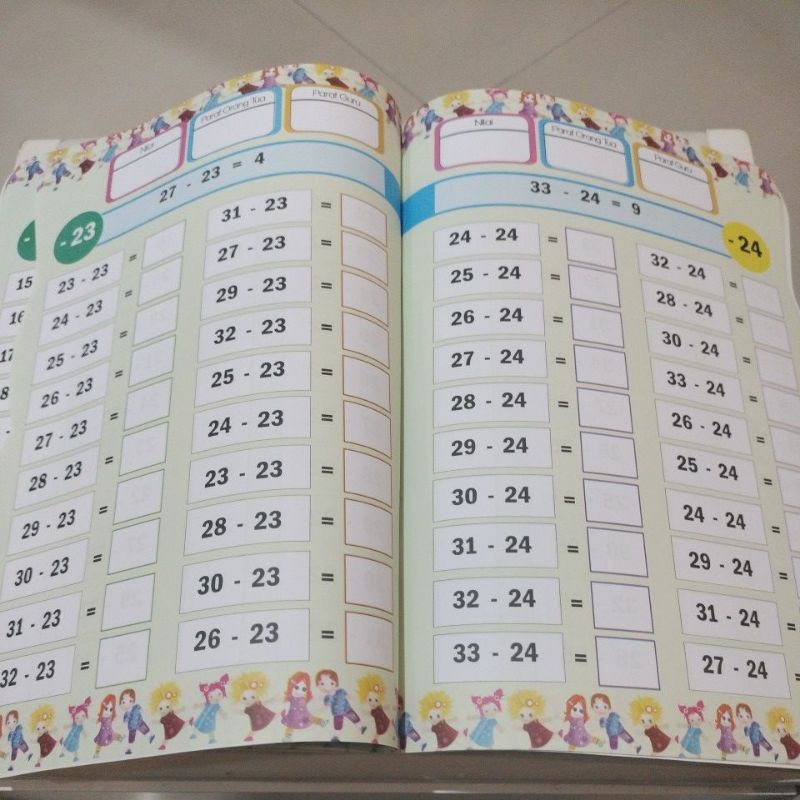 Nilai
Paraf Orang Tua
Paraf Guru
27 - 23 = 4
- 23
23 - 23 =
24 - 23 =
25 - 23 =
26 - 23 =
27 - 23 =
28 - 23 =
29 - 23 =
30 - 23 =
31 - 23 =
32 - 23 =
31 - 23 =
27 - 23 =
29 - 23 =
32 - 23 =
25 - 23 =
24 - 23 =
23 - 23 =
28 - 23 =
30 - 23 =
26 - 23 =
Nilai
Paraf Orang Tua
Paraf Guru
33 - 24 = 9
- 24
24 - 24 =
25 - 24 =
26 - 24 =
27 - 24 =
28 - 24 =
29 - 24 =
30 - 24 =
31 - 24 =
32 - 24 =
33 - 24 =
32 - 24 =
28 - 24 =
30 - 24 =
33 - 24 =
26 - 24 =
25 - 24 =
24 - 24 =
29 - 24 =
31 - 24 =
27 - 24 =